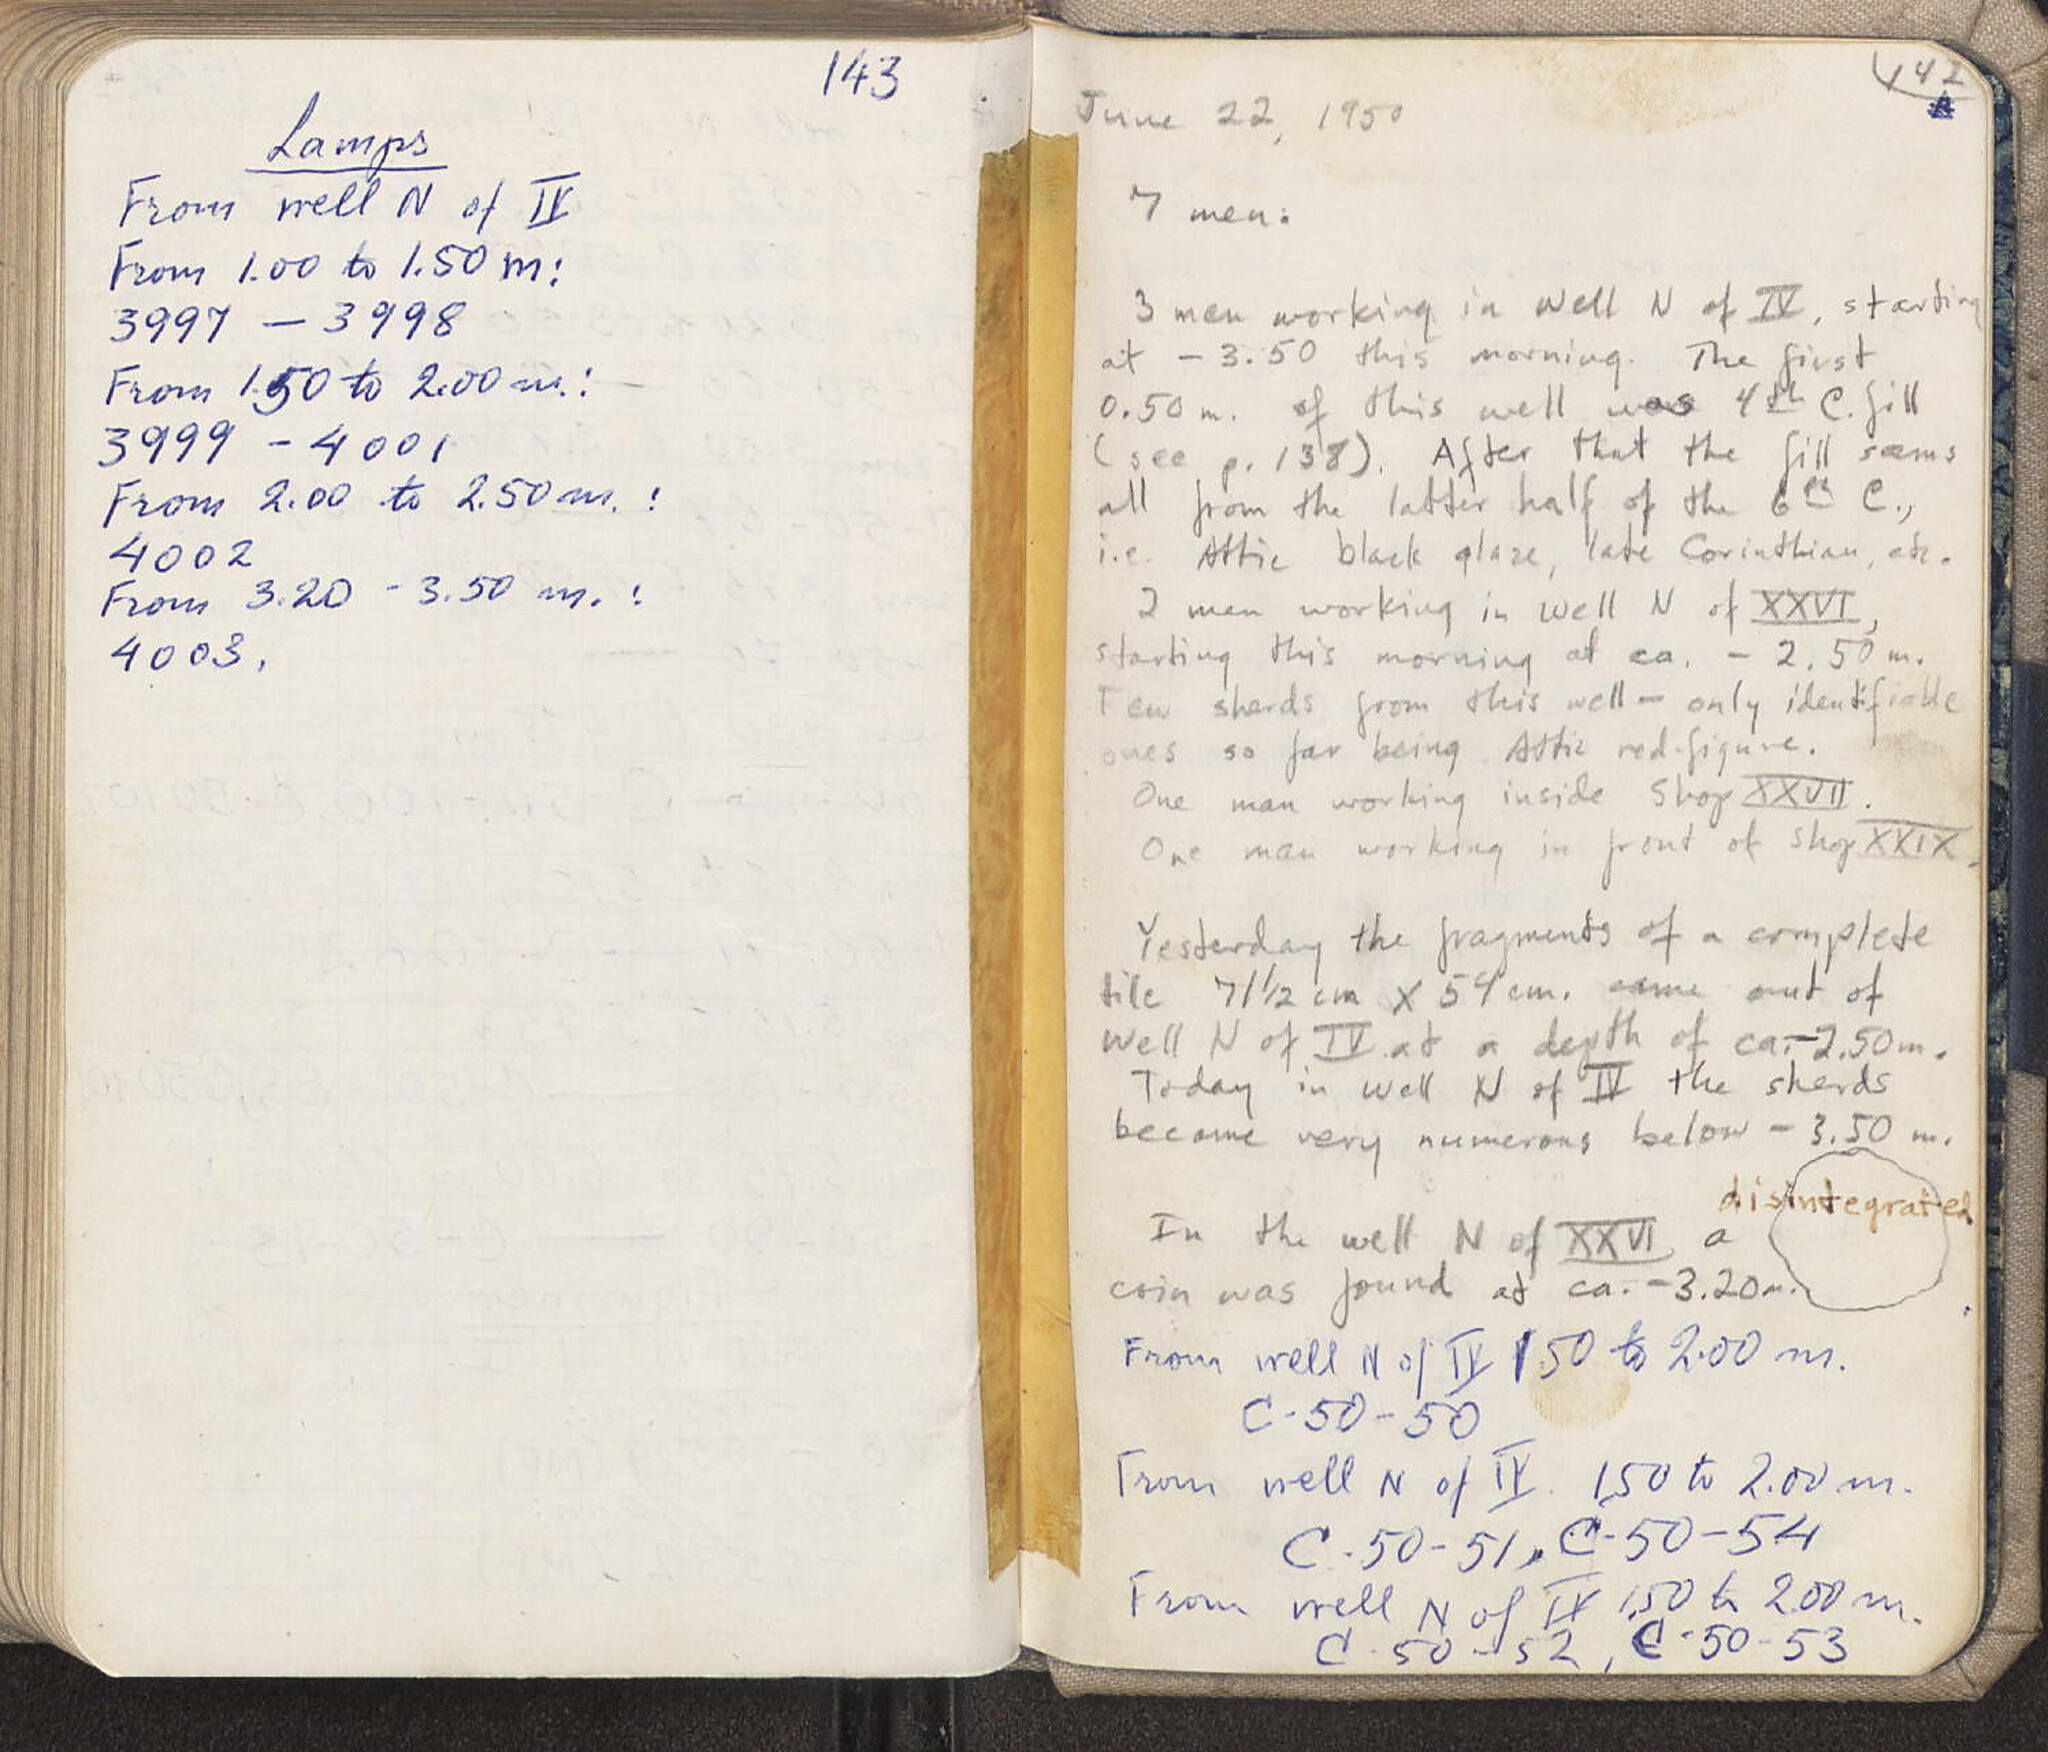 143
Lamps
From well N of IV
From 1.00 to 1.50 m:
3997 — 3998
From 1.50 to 2.00 m.:
3999 - 4001
From 2.00 to 2.50 m. :
4002
From 3.20 - 3.50 m. :
4003.
142
A
June 22, 1950
7 men:
3 men working in well N of IV, starting
at - 3.50 this morning. The first
0.50 m. of this well was 4th C. fill
(see p. 138). After that the fill seems
all from the latter half of the 6th C.,
i.e. Attic black glaze, late Corinthian, etc.
2 men working in well N of XXVI,
starting this morning at ca. - 2.50 m.
Few sherds from this well — only identifiable
ones so far being Attic red-figure.
One man working inside Shop XXVII.
One man working in front of shop XXIX.
Yesterday the fragments of a complete
tile 71½ cm X 54 cm. came out of
well N of IV at a depth of ca. -2.50 m.
Today in well N of IV the sherds
became very numerous below - 3.50 m.
disintegrated
In the well N of XXVI a
coin was found at ca. -3.20 m.
From well N of IV 1.50 to 2.00 m.
C-50-50
From well N of IV. 1.50 to 2.00 m.
C-50-51, C-50-54
From well N of IV 1.50 to 2.00 m.
C-50-52, C-50-53